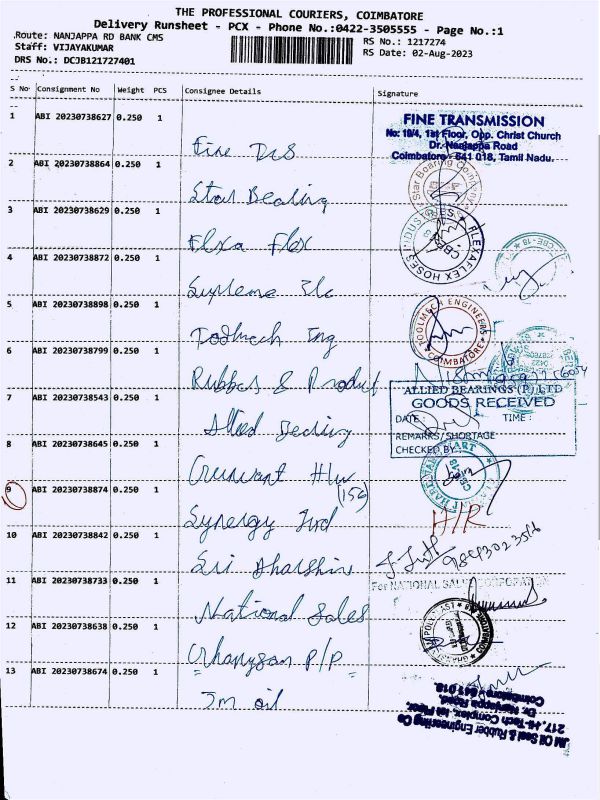 THE PROFESSIONAL COURIERS, COIMBATORE
Delivery Runsheet - PCX - Phone No.:0422-3505555 - Page No.:1
Route: NANJAPPA RD BANK CMS
RS No.: 1217274
Staff: VIJAYAKUMAR
RS Date: 02-Aug-2023
DRS No.: DCJB121727401
S No Consignment No Weight PCS Consignee Details Signature
1 ABI 20230738627 0.250 1
FINE TRANSMISSION
No: 19/4, 1st Floor, Opp. Christ Church
Dr. Nanjappa Road
Coimbatore - 641 018, Tamil Nadu.
Fine
2 ABI 20230738864 0.250 1
Star Bearing
Star Bearing Company
3 ABI 20230738629 0.250 1
Flexa Flex
FLEXAFLEX HOSES INDUSTRIES
4 ABI 20230738872 0.250 1
CBE-18
Supreme
5 ABI 20230738898 0.250 1
Toolmech Eng
TOOLMECH ENGINEERS
COIMBATORE
6 ABI 20230738799 0.250 1
Rubber & Product
7 ABI 20230738543 0.250 1
ALLIED BEARINGS (P) LTD
GOODS RECEIVED
DATE: TIME:
REMARKS/SHORTAGE
CHECKED BY:
Allied Bearing
8 ABI 20230738645 0.250 1
HARDWARE MART
CBE-18
(156)
9 ABI 20230738874 0.250 1
Synergy Ind
H/R
10 ABI 20230738842 0.250 1
Sri Dharshini
9843023566
11 ABI 20230738733 0.250 1
For NATIONAL SALES CORPORATION
National Sales
12 ABI 20230738638 0.250 1
P/P
13 ABI 20230738674 0.250 1
Jm oil
JM Oil Seal & Rubber Engineering Co
217, Hi-Tech Complex, Ist Floor,
Dr. Nanjappa Road,
Coimbatore - 641 018.